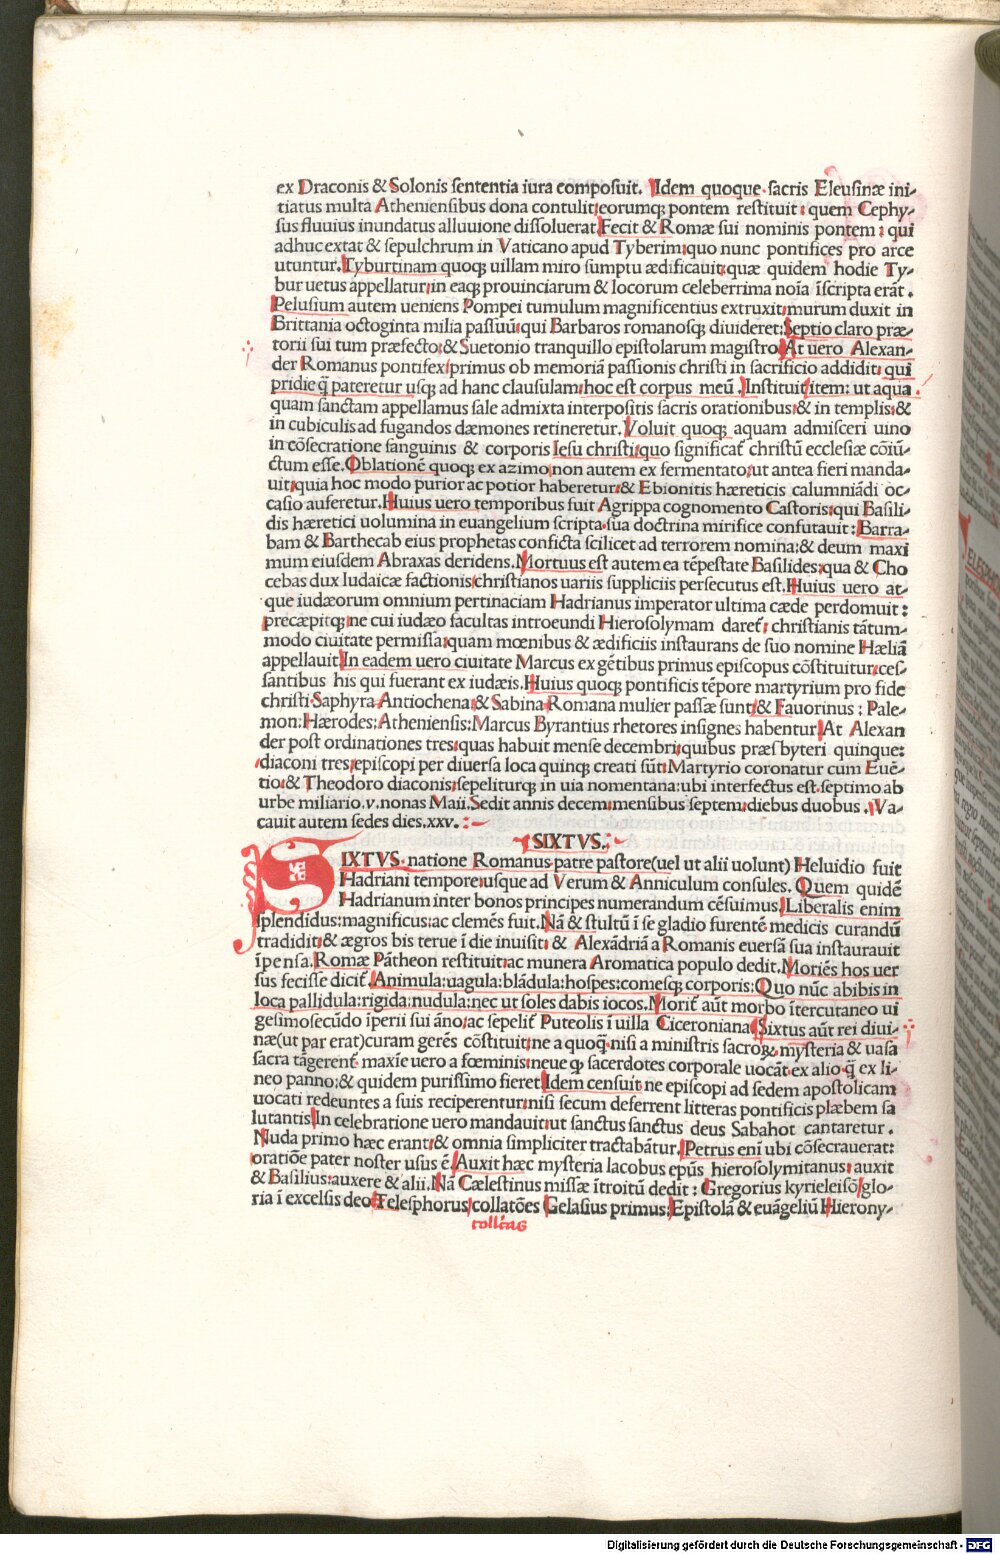 ex Draconis & Solonis sententia iura composuit. Idem quoque sacris Eleusinæ ini-
tiatus multa Atheniensibus dona contulit: eorumq; pontem restituit: quem Cephy-
sus fluuius inundatus alluuione dissoluerat. Fecit & Romæ sui nominis pontem: qui
adhuc extat & sepulchrum in Vaticano apud Tyberim: quo nunc pontifices pro arce
utuntur. Tyburtinam quoq; uillam miro sumptu ædificauit: quæ quidem hodie Ty-
bur uetus appellatur: in eaq; prouinciarum & locorum celeberrima noīa īscripta erāt.
Pelusium autem ueniens Pompei tumulum magnificentius extruxit: murum duxit in
Brittania octoginta milia passuū: qui Barbaros romanosq; diuideret: Septio claro præ-
torii sui tum præfecto: & Suetonio tranquillo epistolarum magistro. At uero Alexan-
der Romanus pontifex: primus ob memoriā passionis christi in sacrificio addidit: qui
pridie q̄ pateretur usq; ad hanc clausulam: hoc est corpus meū. Instituit item: ut aqua
quam sanctam appellamus sale admixta interpositis sacris orationibus: & in templis: &
in cubiculis ad fugandos dæmones retineretur. Voluit quoq; aquam admisceri uino
in cōsecratione sanguinis & corporis Iesu christi: quo significat̄ christū ecclesiæ cōiū-
ctum esse. Oblationē quoq; ex azimo: non autem ex fermentato: ut antea fieri manda-
uit: quia hoc modo purior ac potior haberetur: & Ebionitis hæreticis calumniādi oc-
casio auferetur. Huius uero temporibus fuit Agrippa cognomento Castoris: qui Basili-
dis hæretici uolumina in euangelium scripta sua doctrina mirifice confutauit: Barra-
bam & Barthecab eius prophetas conficta scilicet ad terrorem nomina: & deum maxi
mum eiusdem Abraxas deridens. Mortuus est autem ea tēpestate Basilides: qua & Cho
cebas dux Iudaicæ factionis christianos uariis suppliciis persecutus est. Huius uero at-
que iudæorum omnium pertinaciam Hadrianus imperator ultima cæde perdomuit:
præcæpitq; ne cui iudæo facultas introeundi Hierosolymam daret̄: christianis tātum-
modo ciuitate permissa: quam mœnibus & ædificiis instaurans de suo nomine Hæliā
appellauit. In eadem uero ciuitate Marcus ex gētibus primus episcopus cōstituitur: ces-
santibus his qui fuerant ex iudæis. Huius quoq; pontificis tēpore martyrium pro fide
christi Saphyra Antiochena & Sabina Romana mulier passæ sunt: & Fauorinus: Pale-
mon: Hærodes: Atheniensis: Marcus Byrantius rhetores insignes habentur. At Alexan
der post ordinationes tres: quas habuit mense decembri: quibus præsbyteri quinque:
diaconi tres: episcopi per diuersa loca quinq; creati sūt: Martyrio coronatur cum Euē-
tio: & Theodoro diaconis: sepeliturq; in uia nomentana: ubi interfectus est. septimo ab
urbe miliario. v. nonas Maii. Sedit annis decem: mensibus septem: diebus duobus. Va-
cauit autem sedes dies. xxv.
SIXTVS.
SIXTVS natione Romanus patre pastore (uel ut alii uolunt) Heluidio fuit
Hadriani tempore: usque ad Verum & Anniculum consules. Quem quidē
Hadrianum inter bonos principes numerandum cēsuimus. Liberalis enim
splendidus: magnificus: ac clemēs fuit. Nā & stultū ī se gladio furentē medicis curandū
tradidit: & ægros bis terue ī die inuisit: & Alexādriā a Romanis euersā sua instaurauit
īpensa. Romæ Pātheon restituit: ac munera Aromatica populo dedit. Moriēs hos uer
sus fecisse dicit̄. Animula: uagula: blādula: hospes: comesq; corporis: Quo nūc abibis in
loca pallidula: rigida: nudula: nec ut soles dabis iocos. Morit̄ aūt morbo ītercutaneo ui
gesimosecūdo īperii sui āno: ac sepelit̄ Puteolis ī uilla Ciceroniana. Sixtus aūt rei diui-
næ (ut par erat) curam gerēs cōstituit: ne a quoq̄ nisi a ministris sacroꝝ mysteria & uasa
sacra tāgerent̄ maxīe uero a fœminis: neue q; sacerdotes corporale uocāt ex alio q̄ ex li-
neo panno: & quidem purissimo fieret. Idem censuit ne episcopi ad sedem apostolicam
uocati redeuntes a suis reciperentur: nisi secum deferrent litteras pontificis plæbem sa
lutantis. In celebratione uero mandauit: ut sanctus sanctus deus Sabahot cantaretur.
Nuda primo hæc erant: & omnia simpliciter tractabātur. Petrus eni ubi cōsecrauerat:
oratiōe pater noster usus ē. Auxit hæc mysteria Iacobus epūs hierosolymitanus: auxit
& Basilius: auxere & alii. Nā Cælestinus missæ ītroitū dedit: Gregorius kyrieleisō: glo-
ria ī excelsis deo Telesphorus: collatōes Gelasius primus: Epistolā & euāgeliū Hierony-